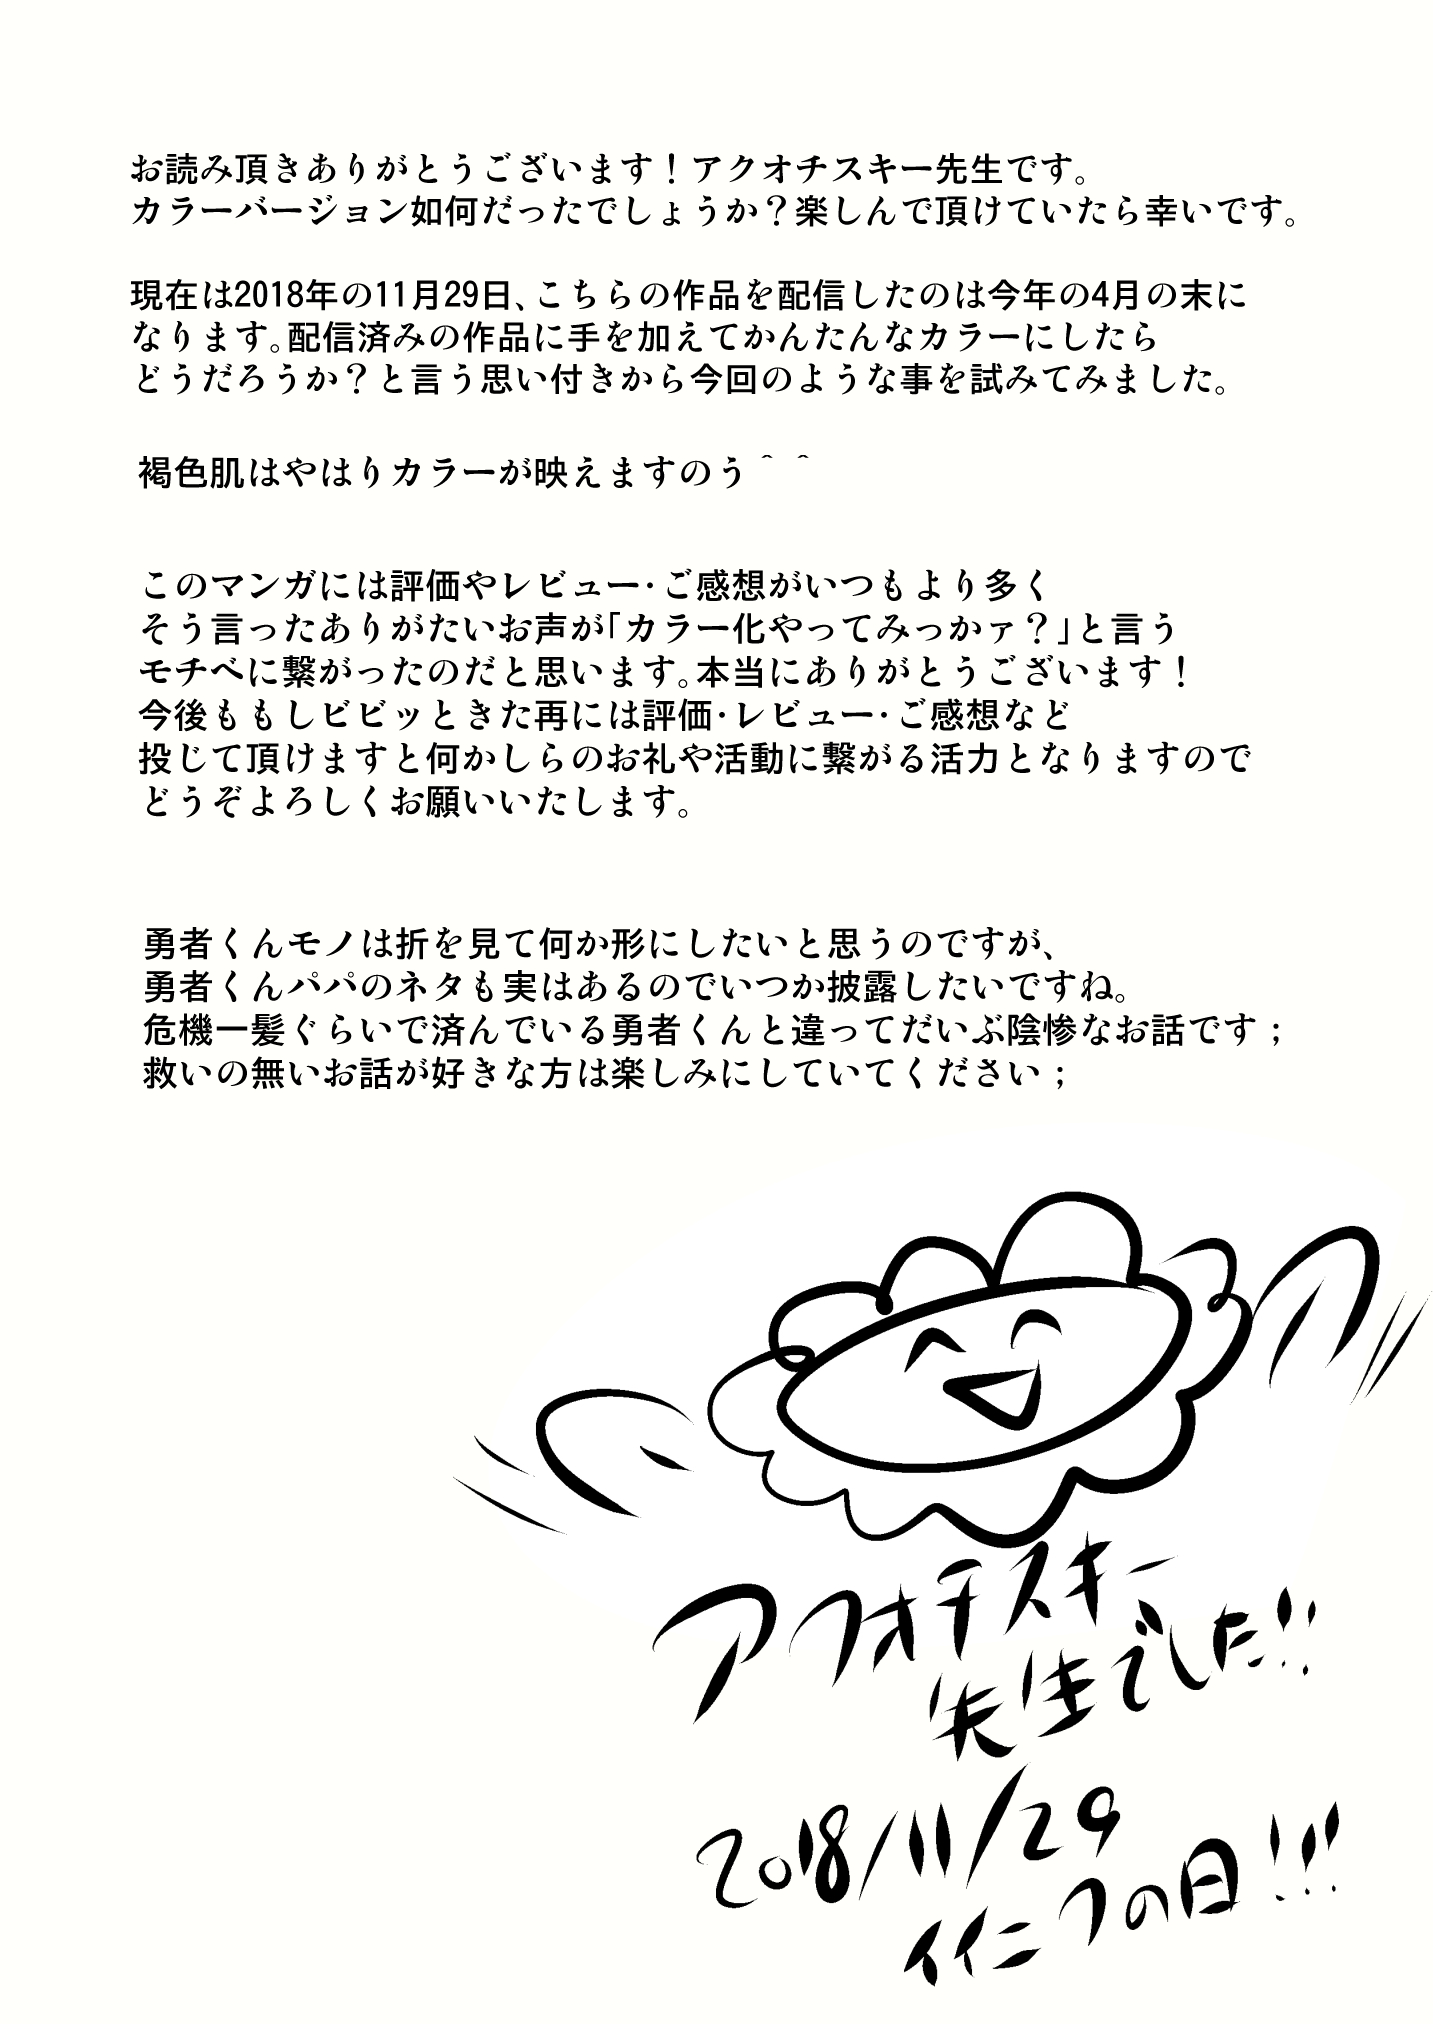 お読み頂きありがとうございます！アクオチスキー先生です。
カラーバージョン如何だったでしょうか？楽しんで頂けていたら幸いです。
現在は2018年の11月29日、こちらの作品を配信したのは今年の4月の末に
なります。配信済みの作品に手を加えてかんたんなカラーにしたら
どうだろうか？と言う思い付きから今回のような事を試みてみました。
褐色肌はやはりカラーが映えますのう＾＾
このマンガには評価やレビュー・ご感想がいつもより多く
そう言ったありがたいお声が「カラー化やってみっかァ？」と言う
モチベに繋がったのだと思います。本当にありがとうございます！
今後ももしビビッときた再には評価・レビュー・ご感想など
投じて頂けますと何かしらのお礼や活動に繋がる活力となりますので
どうぞよろしくお願いいたします。
勇者くんモノは折を見て何か形にしたいと思うのですが、
勇者くんパパのネタも実はあるのでいつか披露したいですね。
危機一髪ぐらいで済んでいる勇者くんと違ってだいぶ陰惨なお話です；
救いの無いお話が好きな方は楽しみにしていてください；
アクオチスキー
先生でした!!
2018/11/29
イイニクの日!!!